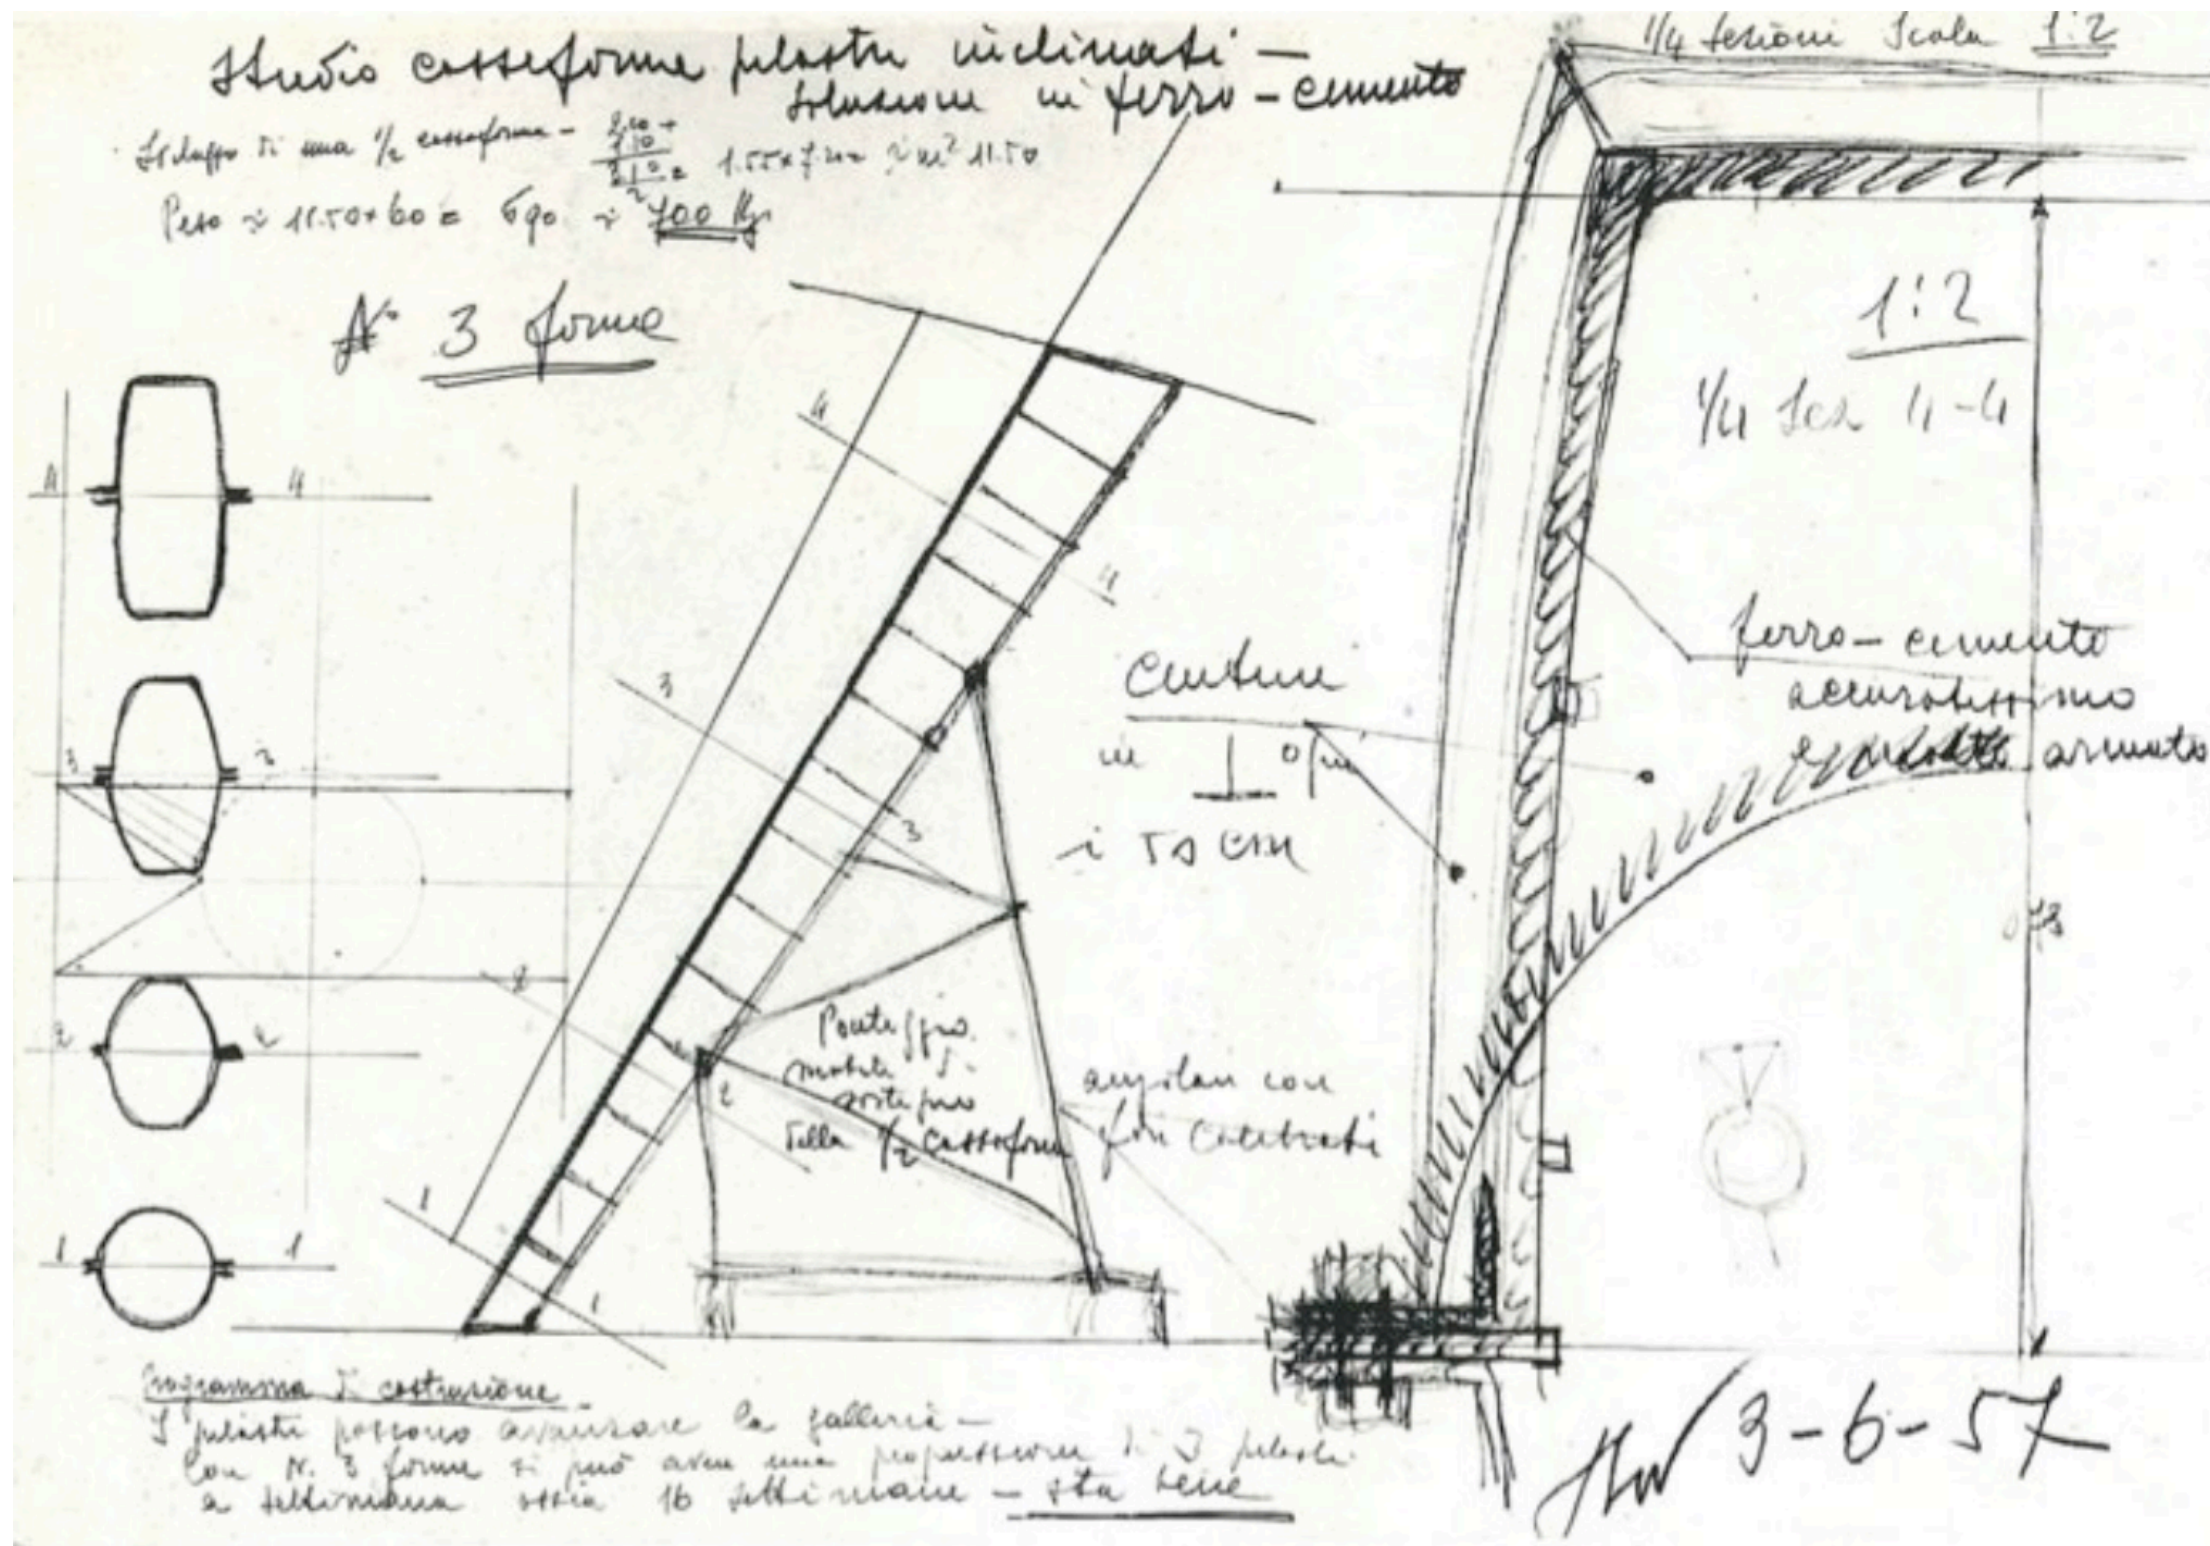 Studio casseforme pilastri inclinati –
soluzione in ferro-cemento
Sviluppo di una 1/2 cassaforma –
1.55 x 7. m² 11.50
Peso ≈ 11.50 x 60 = 690 ≈ 700 Kg
N° 3 forme
1/4 sezioni Scala 1:2
1:2
1/4 Sez 4-4
ferro-cemento
accuratissimo
armato
Centine
in ⊥
50 cm
Ponteggio
mobile di
sostegno
della 1/2 cassaforma
angolari con
fori
073
4 4
3 3
2 2
1 1
4
4
3
3
2
2
1
1
Programma di costruzione
I pilastri possono avanzare la galleria –
Con N. 3 forme si può avere una progressione di 3 pilastri
a settimana ossia 16 settimane – sta bene
3-6-57